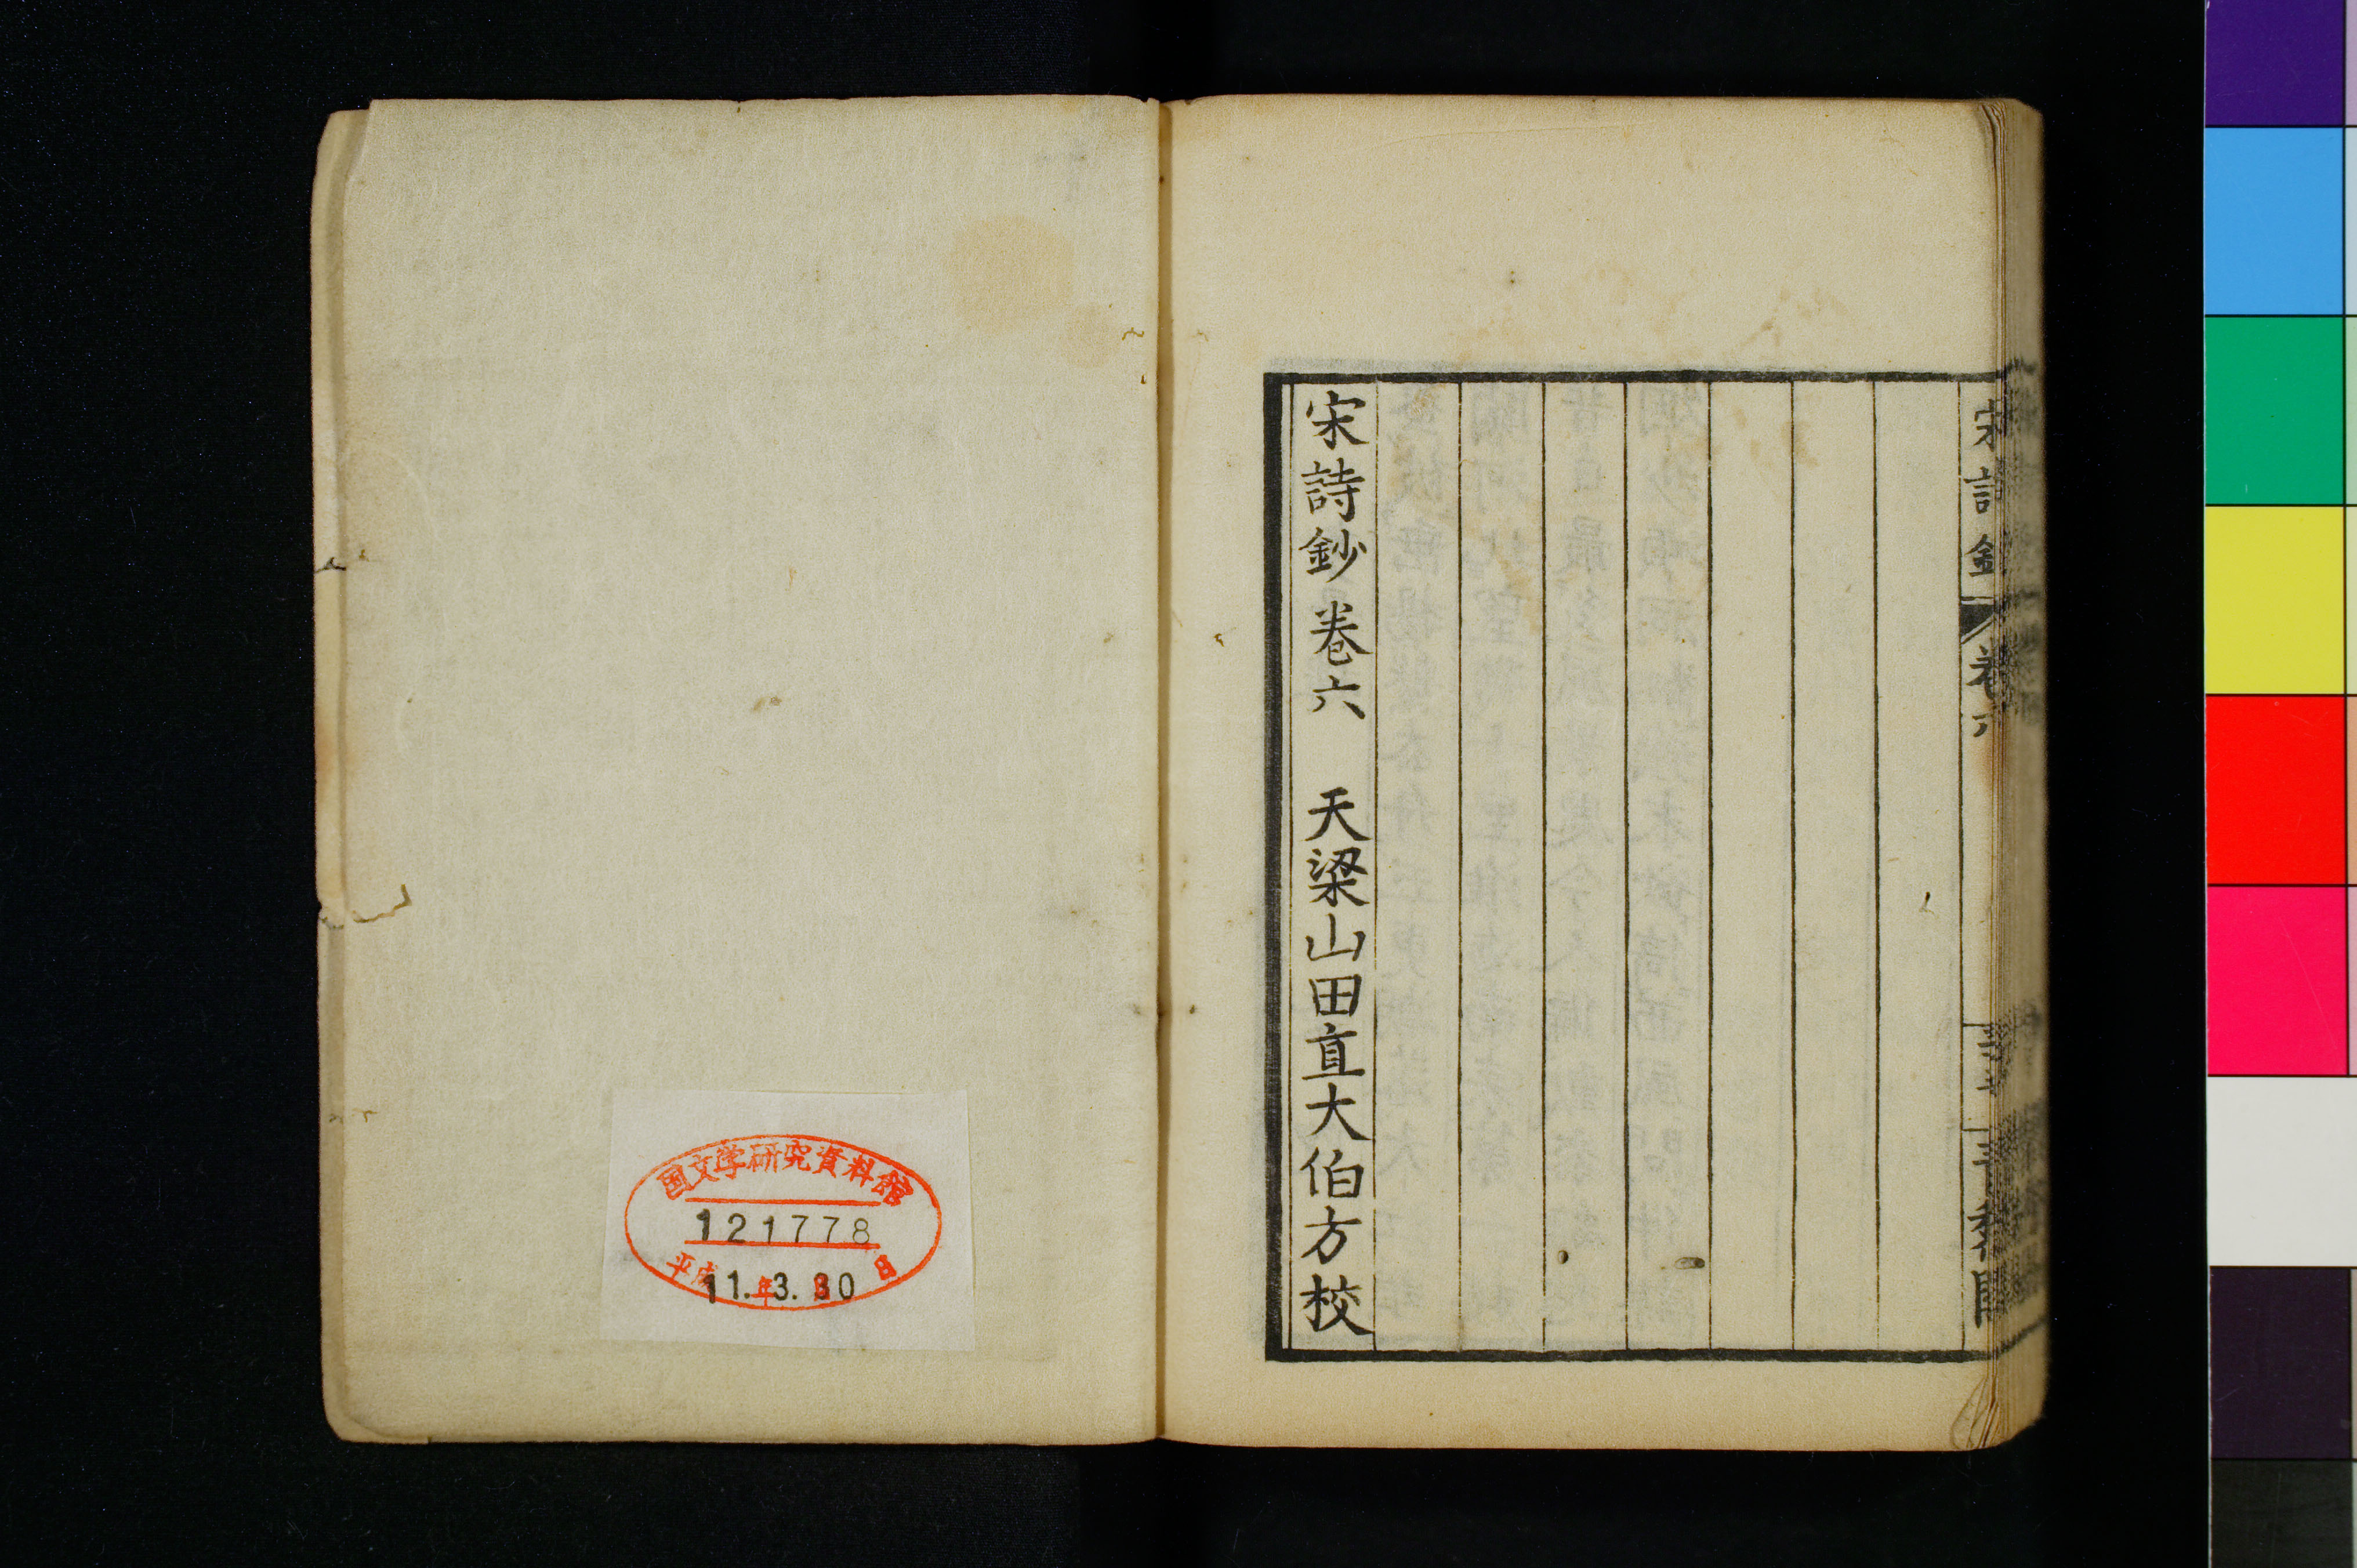 宋詩鈔 卷六
宋詩鈔 卷六 天梁山田直大伯方校
国文学研究資料館
121778
平成 11.年3.月30日